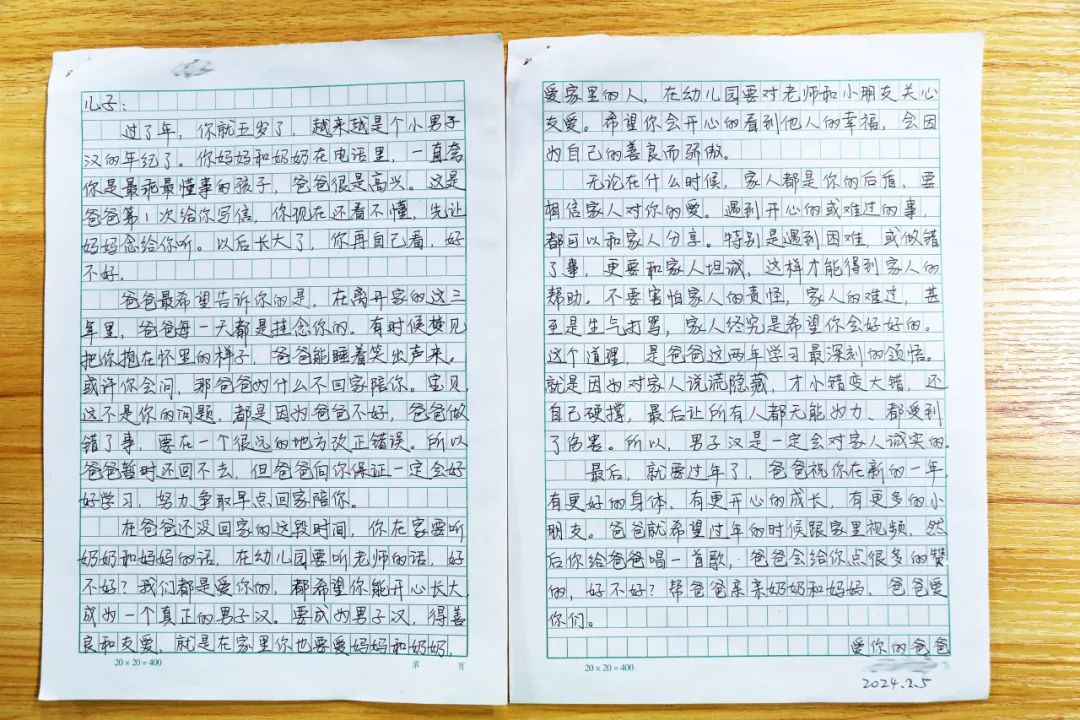 儿子：
过了年，你就五岁了，越来越是个小男子
汉的年纪了。你妈妈和奶奶在电话里，一直夸
你是最乖最懂事的孩子，爸爸很是高兴。这是
爸爸第1次给你写信，你现在还看不懂，先让
妈妈念给你听。以后长大了，你再自己看，好
不好。
爸爸最希望告诉你的是，在离开家的这三
年里，爸爸每一天都是挂念你的。有时候梦见
把你抱在怀里的样子，爸爸能睡着笑出声来。
或许你会问，那爸爸为什么不回家陪你。宝贝，
这不是你的问题，都是因为爸爸不好，爸爸做
错了事，要在一个很远的地方改正错误。所以
爸爸暂时还回不去，但爸爸向你保证一定会好
好学习，努力争取早点回家陪你。
在爸爸还没回家的这段时间，你在家要听
奶奶和妈妈的话，在幼儿园要听老师的话，好
不好？我们都是爱你的，都希望你能开心长大，
成为一个真正的男子汉。要成为男子汉，得善
良和友爱，就是在家里你也要爱妈妈和奶奶，
20×20=400
第 页
爱家里的人，在幼儿园要对老师和小朋友关心
友爱。希望你会开心的看到他人的幸福，会因
为自己的善良而骄傲。
无论在什么时候，家人都是你的后盾，要
相信家人对你的爱。遇到开心的或难过的事，
都可以和家人分享。特别是遇到困难，或做错
了事，更要和家人坦诚，这样才能得到家人的
帮助。不要害怕家人的责怪，家人的难过，甚
至是生气打骂，家人终究是希望你会好好的。
这个道理，是爸爸这两年学习最深刻的领悟。
就是因为对家人说谎隐藏，才小错变大错，还
自己硬撑，最后让所有人都无能为力、都受到
了伤害。所以，男子汉是一定会对家人诚实的。
最后，就要过年了，爸爸祝你在新的一年，
有更好的身体、有更开心的成长，有更多的小
朋友。爸爸就希望过年的时候跟家里视频，然
后你给爸爸唱一首歌，爸爸会给你点很多的赞
的，好不好？帮爸爸亲亲奶奶和妈妈、爸爸爱
你们。
爱你的爸爸
20×20=400
2024.2.5